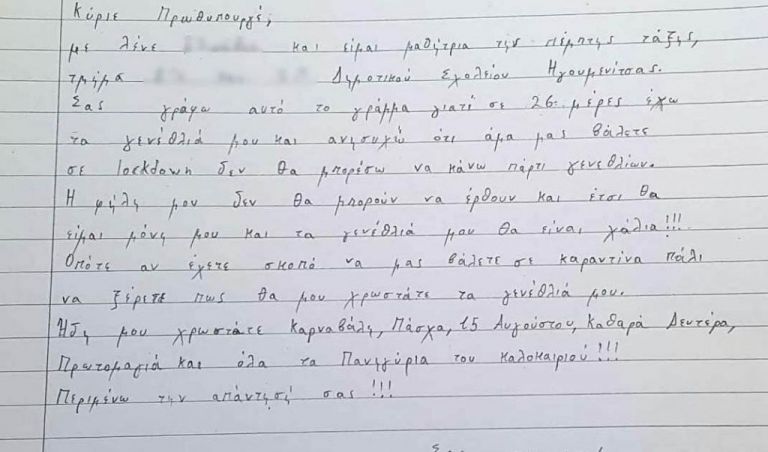 Κύριε Πρωθυπουργέ,
με λένε και είμαι μαθήτρια της πέμπτης τάξης,
τμήμα Δημοτικού Σχολείου Ηγουμενίτσας.
Σας γράφω αυτό το γράμμα γιατί σε 26 μέρες έχω
τα γενέθλιά μου και ανησυχώ ότι άμα μας βάλετε
σε lockdown δεν θα μπορέσω να κάνω πάρτι γενεθλίων.
Η φίλη μου δεν θα μπορούν να έρθουν και έτσι θα
είμαι μόνη μου και τα γενέθλιά μου θα είναι χάλια!!!
Οπότε αν έχετε σκοπό να μας βάλετε σε καραντίνα πάλι
να ξέρετε πως θα μου χρωστάτε τα γενέθλιά μου.
Ήδη μου χρωστάτε Καρναβάλη, Πάσχα, 15 Αυγούστου, Καθαρά Δευτέρα,
Πρωτομαγιά και όλα τα Πανηγύρια του καλοκαιριού!!!
Περιμένω την απάντησή σας!!!